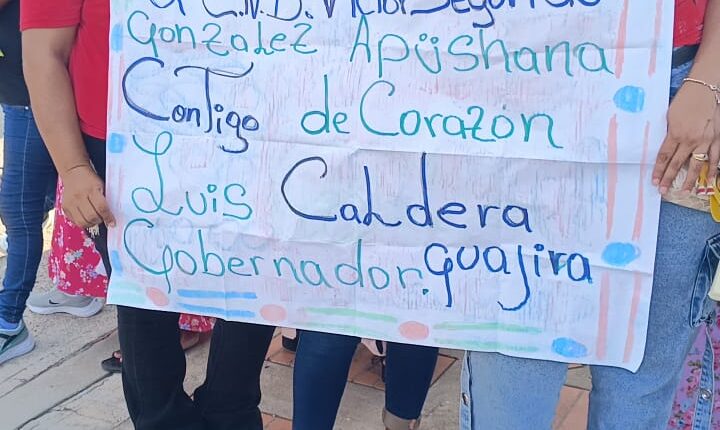 C.N.B. Victor Segundo
Gonzalez Apüshana
Contigo de Corazón
Luis Caldera
Gobernador. guajira